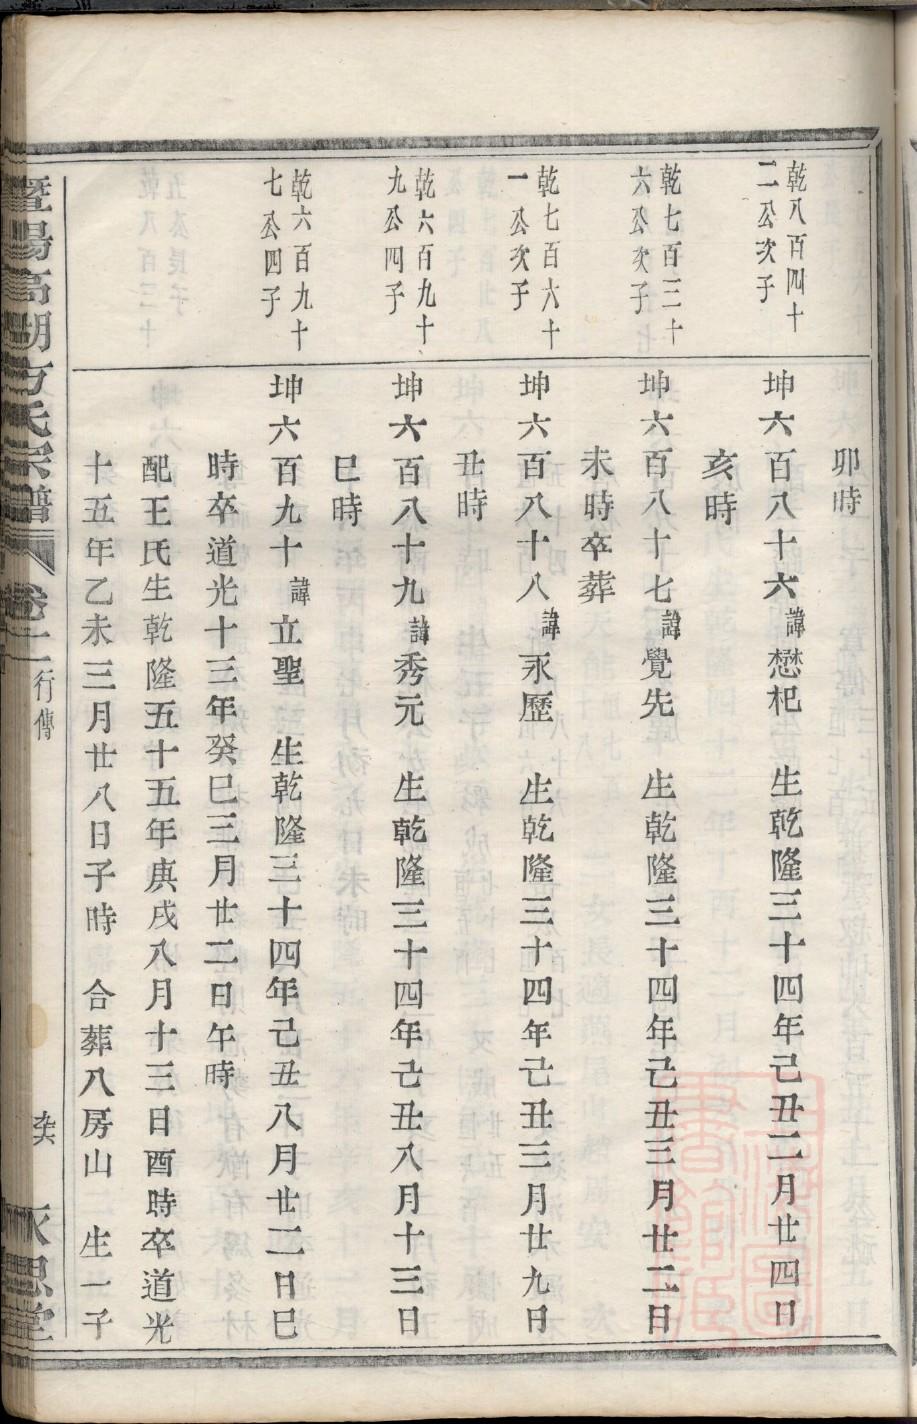 卯時
乾八百四十
二公次子
坤六百八十六諱懋杞 生乾隆三十四年己丑二月廿四日
亥時
乾七百三十
六公次子
坤六百八十七諱覺先 生乾隆三十四年己丑三月廿二日
未時卒葬
乾七百六十
一公次子
坤六百八十八諱永歷 生乾隆三十四年己丑三月廿九日
丑時
乾六百九十
九公四子
坤六百八十九諱秀元 生乾隆三十四年己丑八月十三日
巳時
乾六百九十
七公四子
坤六百九十諱立聖 生乾隆三十四年己丑八月廿二日巳
時卒道光十三年癸巳三月廿二日午時
配王氏生乾隆五十五年庚戌八月十三日酉時卒道光
十五年乙未三月廿八日子時 合葬八房山 生一子
暨陽高湖方氏宗譜 卷十 行傳 永思堂